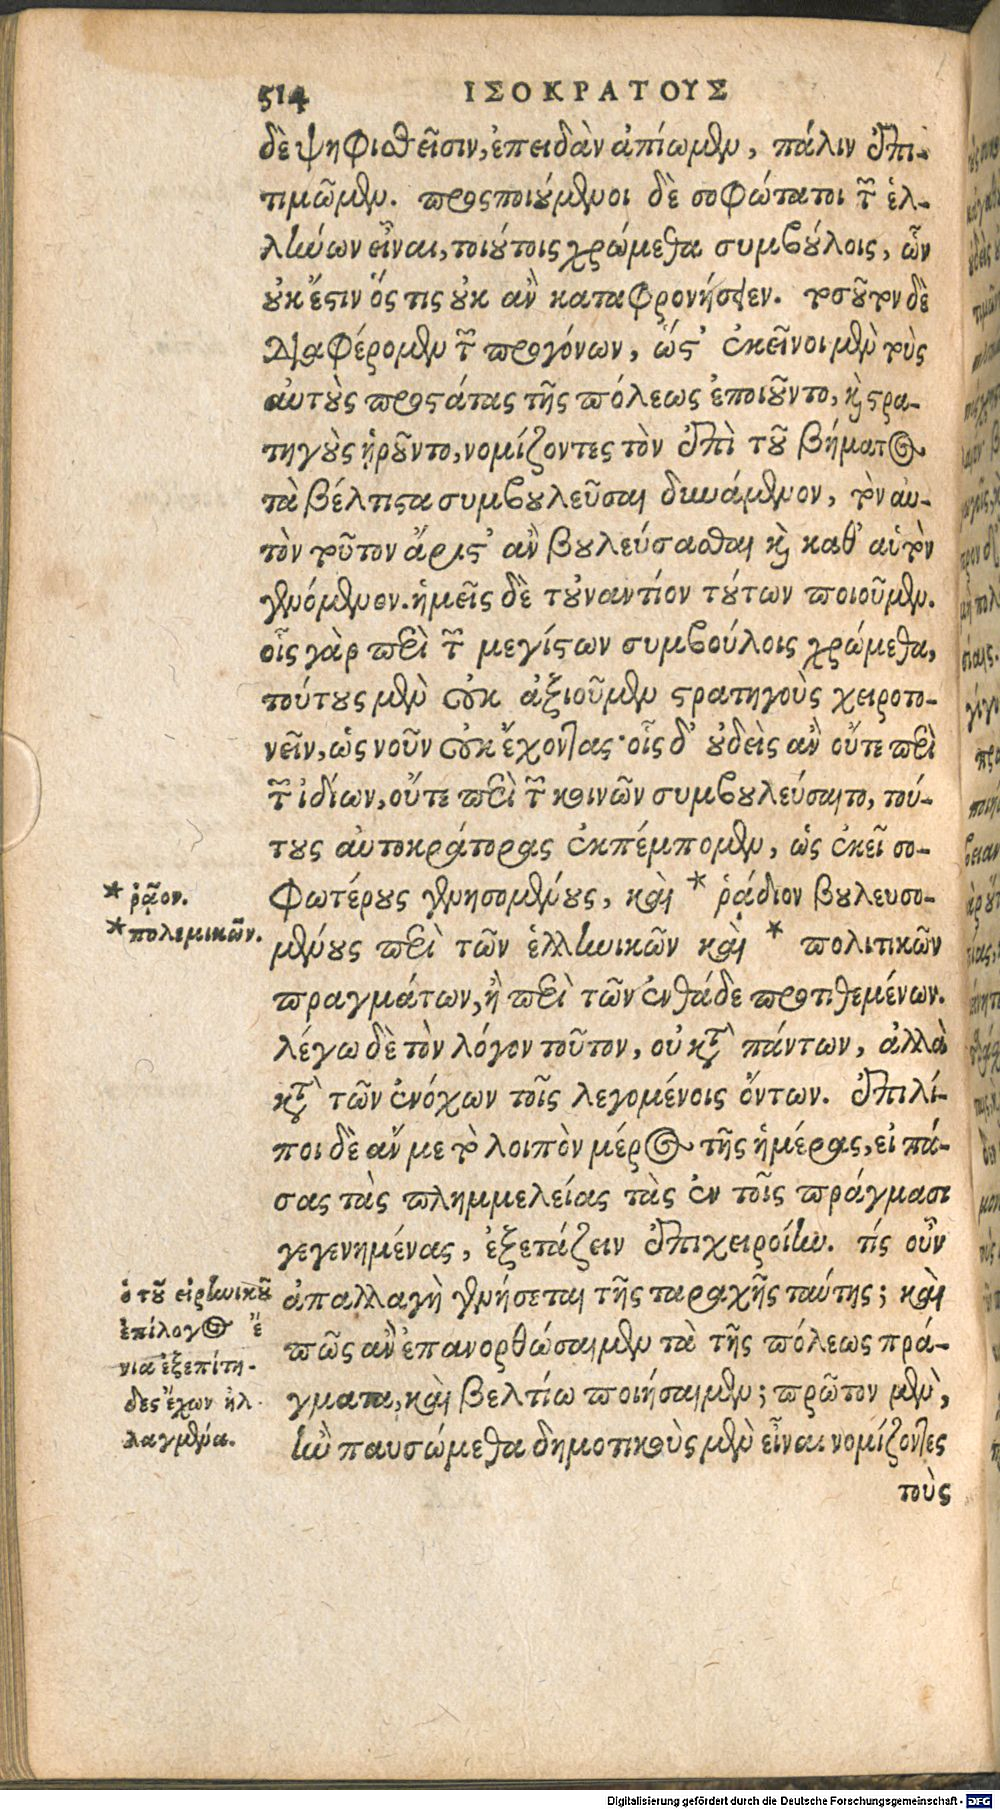 514 ΙΣΟΚΡΑΤΟΥΣ
δὲ ψηφισθεῖσιν, ἐπειδὰν ἀπίωμεν, πάλιν ἐπι-
τιμῶμεν. προσποιούμενοι δὲ σοφώτατοι τῶν ἑλ-
λήνων εἶναι, τοιούτοις χρώμεθα συμβούλοις, ὧν
οὐκ ἔστιν ὅς τις οὐκ ἂν καταφρονήσειεν. τοσοῦτον δὲ
διαφέρομεν τῶν προγόνων, ὥστ' ἐκεῖνοι μὲν τοὺς
αὐτοὺς προστάτας τῆς πόλεως ἐποιοῦντο, καὶ στρα-
τηγοὺς ᾑροῦντο, νομίζοντες τὸν ἐπὶ τοῦ βήματος
τὰ βέλτιστα συμβουλεῦσαι δυνάμενον, τὸν αὐ-
τὸν τοῦτον ἄριστ' ἂν βουλεύσασθαι καὶ καθ' αὑτὸν
γενόμενον. ἡμεῖς δὲ τοὐναντίον τούτων ποιοῦμεν.
οἷς γὰρ περὶ τῶν μεγίστων συμβούλοις χρώμεθα,
τούτους μὲν οὐκ ἀξιοῦμεν στρατηγοὺς χειροτο-
νεῖν, ὡς νοῦν οὐκ ἔχοντας· οἷς δ' οὐδεὶς ἂν οὔτε περὶ
τῶν ἰδίων, οὔτε περὶ τῶν κοινῶν συμβουλεύσαιτο, τού-
τους αὐτοκράτορας ἐκπέμπομεν, ὡς ἐκεῖ σο-
φωτέρους γενησομένους, καὶ * ῥᾴδιον βουλευσο-
μένους περὶ τῶν ἑλληνικῶν καὶ * πολιτικῶν
πραγμάτων, ἢ περὶ τῶν ἐνθάδε προτιθεμένων.
λέγω δὲ τὸν λόγον τοῦτον, οὐ κατὰ πάντων, ἀλλὰ
κατὰ τῶν ἐνόχων τοῖς λεγομένοις ὄντων. ἐπιλί-
ποι δὲ ἄν με τὸ λοιπὸν μέρος τῆς ἡμέρας, εἰ πά-
σας τὰς πλημμελείας τὰς ἐν τοῖς πράγμασι
γεγενημένας, ἐξετάζειν ἐπιχειροίην. τίς οὖν
ἀπαλλαγὴ γενήσεται τῆς ταραχῆς ταύτης; καὶ
πῶς ἂν ἐπανορθώσαιμεν τὰ τῆς πόλεως πρά-
γματα, καὶ βελτίω ποιήσαιμεν; πρῶτον μὲν,
ἢν παυσώμεθα δημοτικοὺς μὲν εἶναι νομίζοντες
τοὺς
* ῥᾷον.
* πολεμικῶν.
ὁ τοῦ εἰρηνικοῦ
ἐπίλογος ἔ
νια ἐξεπίτη-
δες ἔχων ἠλ-
λαγμένα.
Digitalisierung gefördert durch die Deutsche Forschungsgemeinschaft - DFG